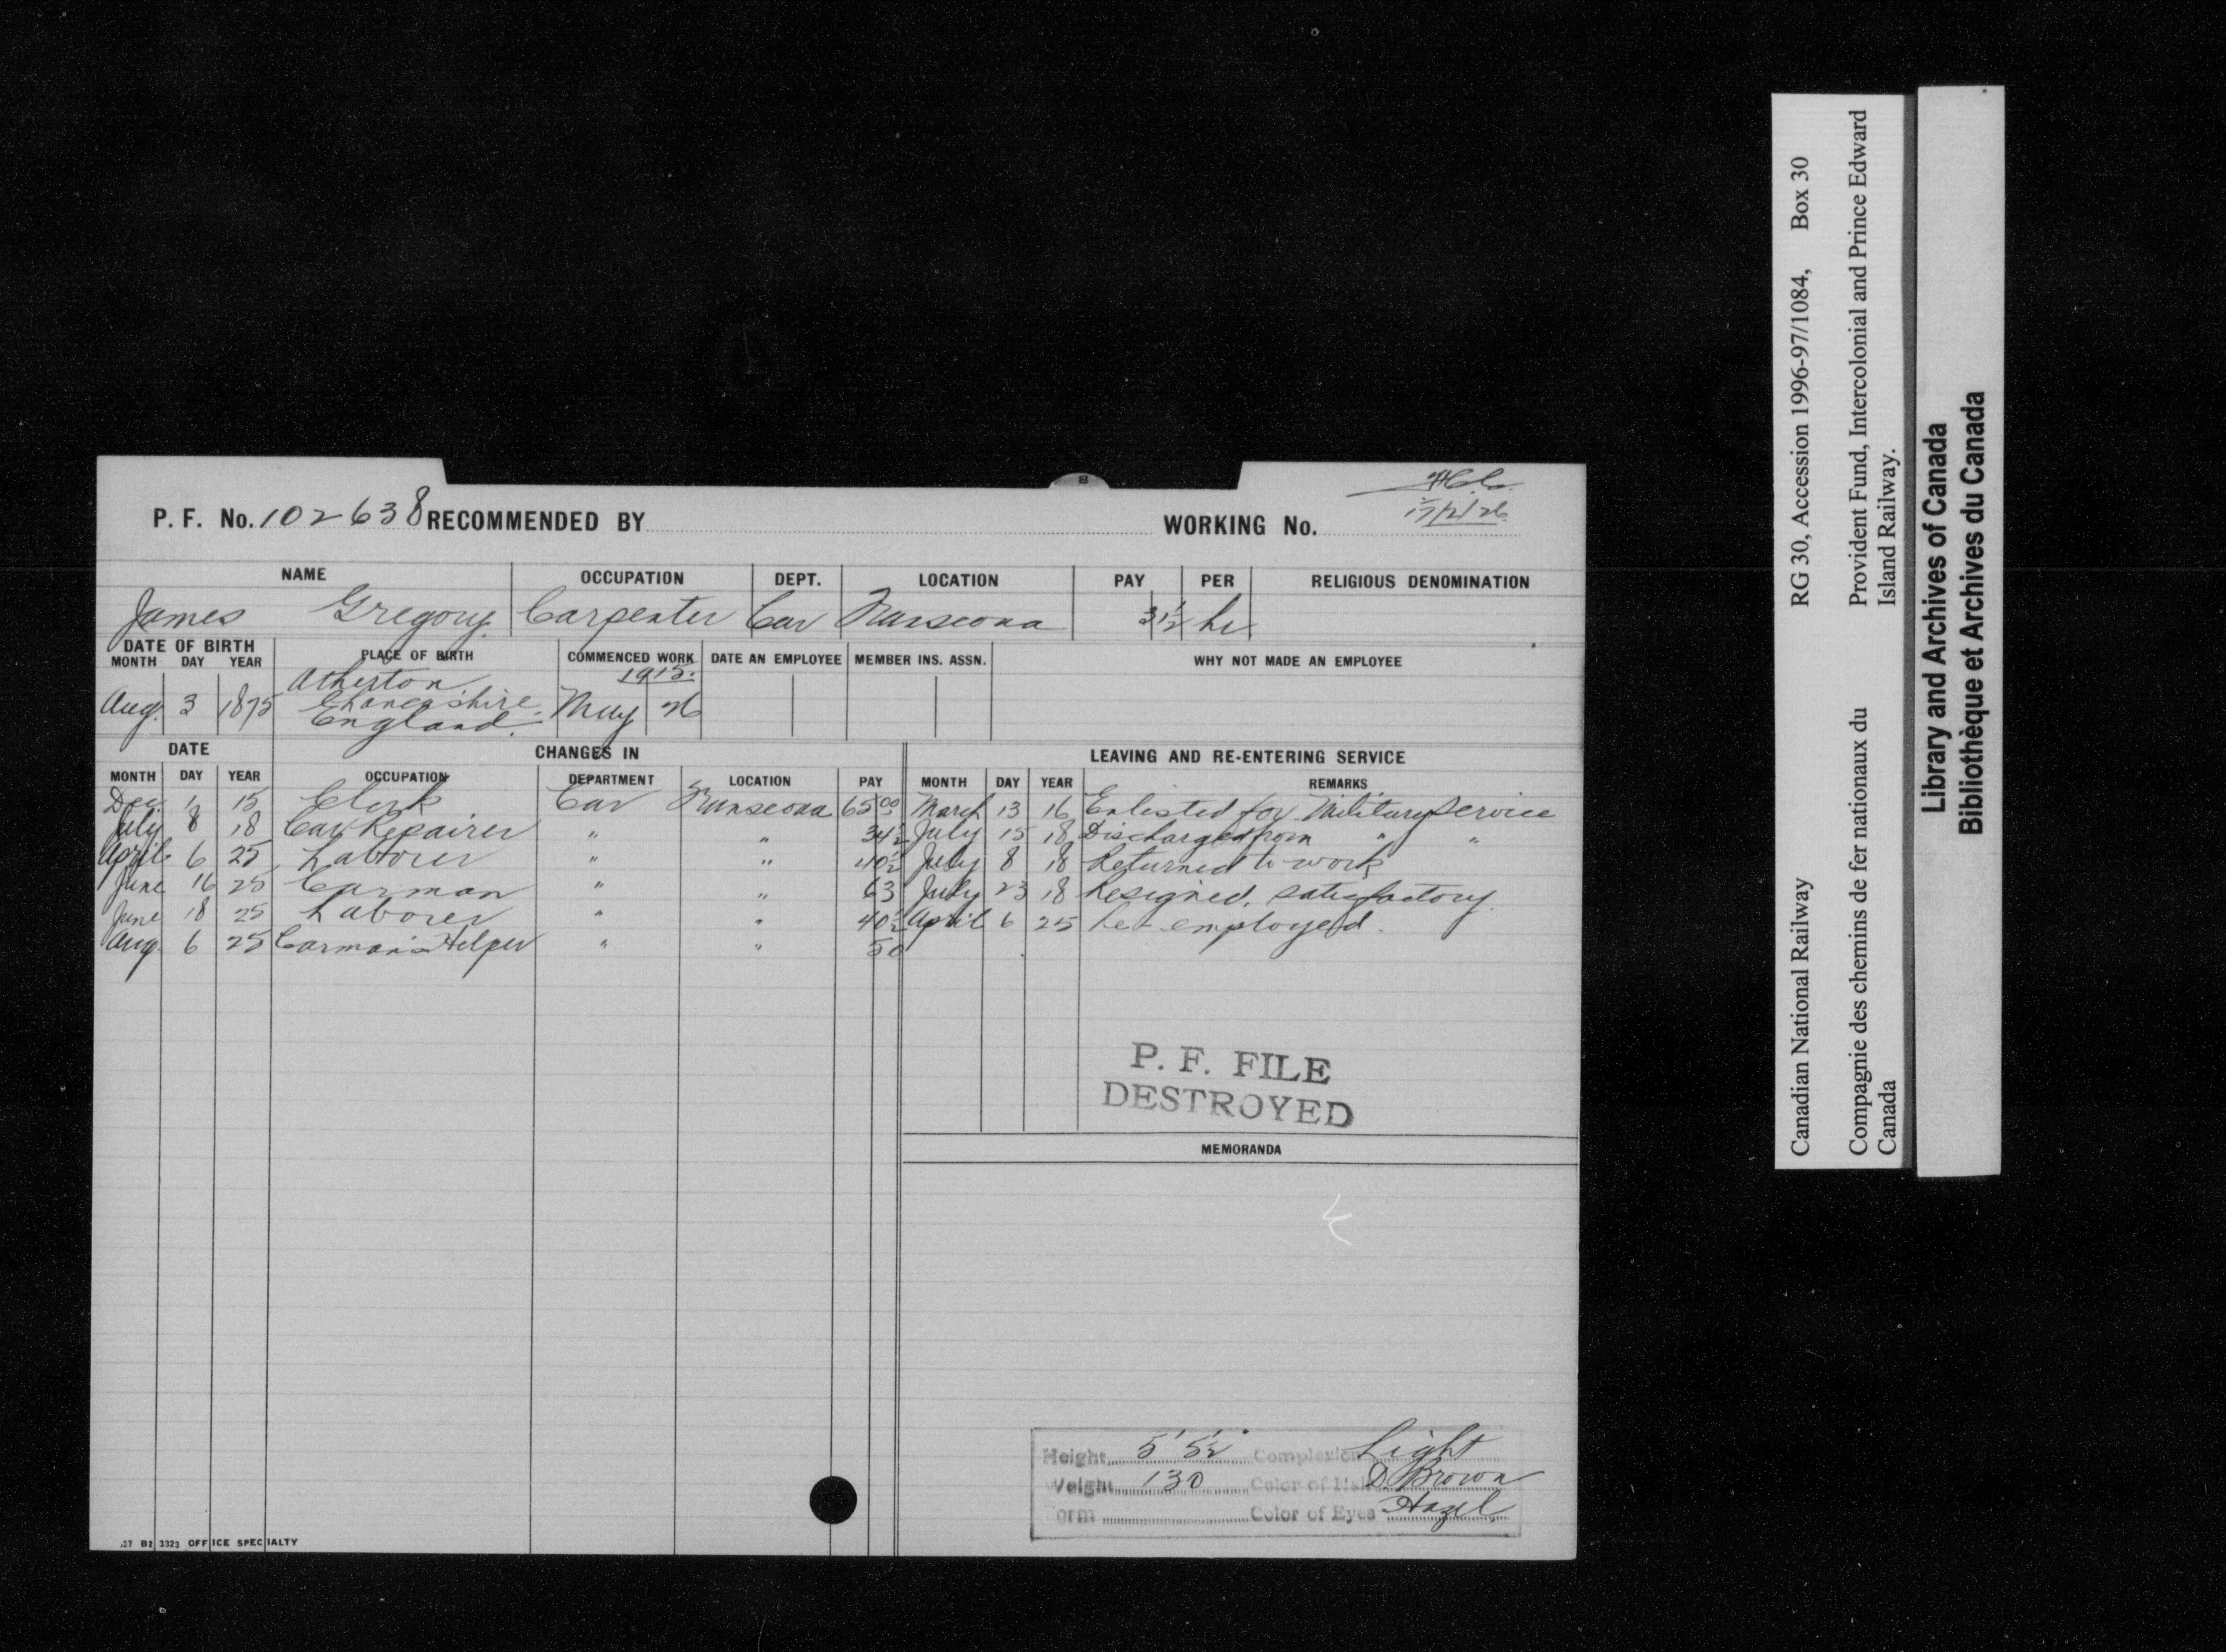 P. F. No. 102638 RECOMMENDED BY WORKING No.
17/2/26
NAME OCCUPATION DEPT. LOCATION PAY PER RELIGIOUS DENOMINATION
James Gregory Carpenter Car Transcona 31½ hr
DATE OF BIRTH PLACE OF BIRTH COMMENCED WORK DATE AN EMPLOYEE MEMBER INS. ASSN. WHY NOT MADE AN EMPLOYEE
MONTH DAY YEAR
Atherton 1915.
Aug. 3 1875 Lancashire, May 26
England.
DATE CHANGES IN LEAVING AND RE-ENTERING SERVICE
MONTH DAY YEAR OCCUPATION DEPARTMENT LOCATION PAY MONTH DAY YEAR REMARKS
Dec. 1 15 Clerk Car Transcona 65 00 March 13 16 Enlisted for Military Service
July 8 18 Car Repairer " " 34½ July 15 18 Discharged from " "
April 6 25 Laborer " " 40½ July 8 18 Returned to work
June 16 25 Carman " " 63 July 23 18 Resigned, satisfactory.
June 18 25 Laborer " " 40½ April 6 25 Re-employed.
Aug. 6 25 Carman's Helper " " 50
P. F. FILE
DESTROYED
MEMORANDA
Height 5' 5½" Complexion Light
Weight 130 Color of Hair D. Brown
Form Color of Eyes Hazel
3323 OFFICE SPECIALTY
Canadian National Railway RG 30, Accession 1996-97/1084, Box 30
Compagnie des chemins de fer nationaux du Canada
Provident Fund, Intercolonial and Prince Edward Island Railway.
Library and Archives of Canada
Bibliothèque et Archives du Canada